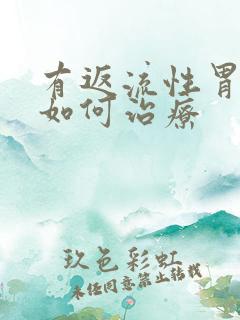 有返流性胃
如何治疗
玖色彩虹
未经同意禁止转载